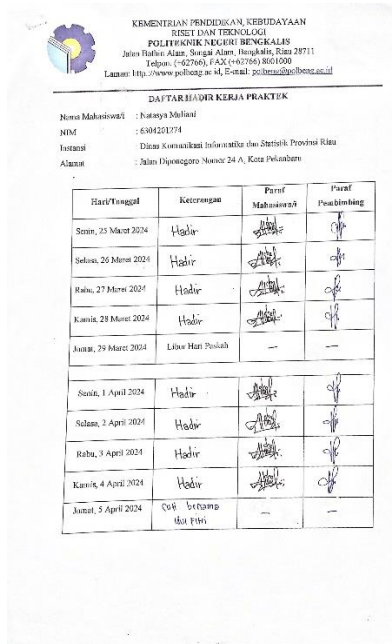 KEMENTRIAN PENDIDIKAN, KEBUDAYAAN
RISET DAN TEKNOLOGI
POLITEKNIK NEGERI BENGKALIS
Jalan Bathin Alam, Sungai Alam, Bengkalis, Riau 28711
Telpon. (+62766), FAX (+62766) 8001000
Laman: http://www.polbeng.ac.id, E-mail: polbeng@polbeng.ac.id
DAFTAR HADIR KERJA PRAKTEK
Nama Mahasiswa/i : Natasya Muliani
NIM : 6304201274
Instansi : Dinas Komunikasi Informatika dan Statistik Provinsi Riau
Alamat : Jalan Diponegoro Nomor 24 A, Kota Pekanbaru
Hari/Tanggal Keterangan Paraf Mahasiswa/i Paraf Pembimbing
Senin, 25 Maret 2024 Hadir
Selasa, 26 Maret 2024 Hadir
Rabu, 27 Maret 2024 Hadir
Kamis, 28 Maret 2024 Hadir
Jumat, 29 Maret 2024 Libur Hari Paskah — —
Senin, 1 April 2024 Hadir
Selasa, 2 April 2024 Hadir
Rabu, 3 April 2024 Hadir
Kamis, 4 April 2024 Hadir
Jumat, 5 April 2024 Cuti bersama — —
Idul Fitri